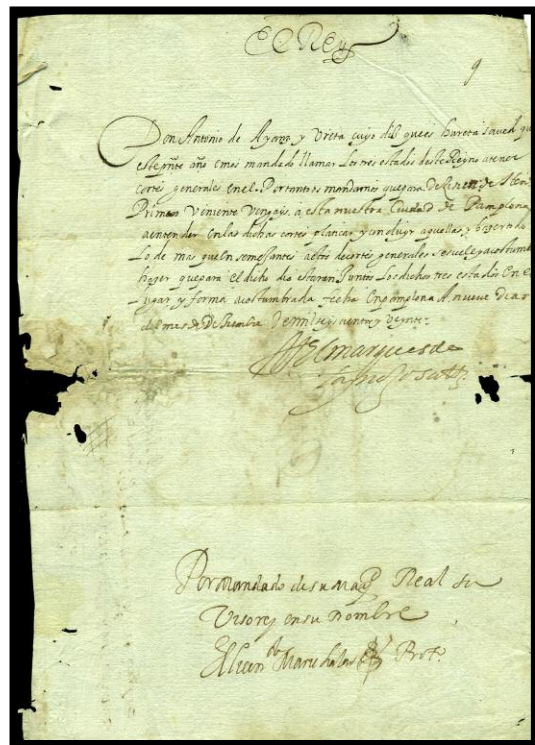 El Rey
9
Don Antonio de Ayanz y Ureta cuyo dil quees hareta saved que
este pnte año emos mandado llamar los tres estados deste Reino atener
cortes generales en el. Portanto os mandamos quepara de
Primero Veniente Vengays a esta nuestra Ciudad de Pamplona
aentender en las dichas cortes platicar y concluyr aquellas y hazer todo
Lo de mas que en semejantes actos de cortes generales sesuele yacostumbra
hazer quepara el dicho dia estaran Juntos Los dichos tres estados En el
Lugar y forma acostumbrada fecha En pamplona A nueve
del mes de Diziembre de mil seys cientos y veynte
El marques de
Por Mandado de su Magd Real Su
Visorey en su nombre
El licendo